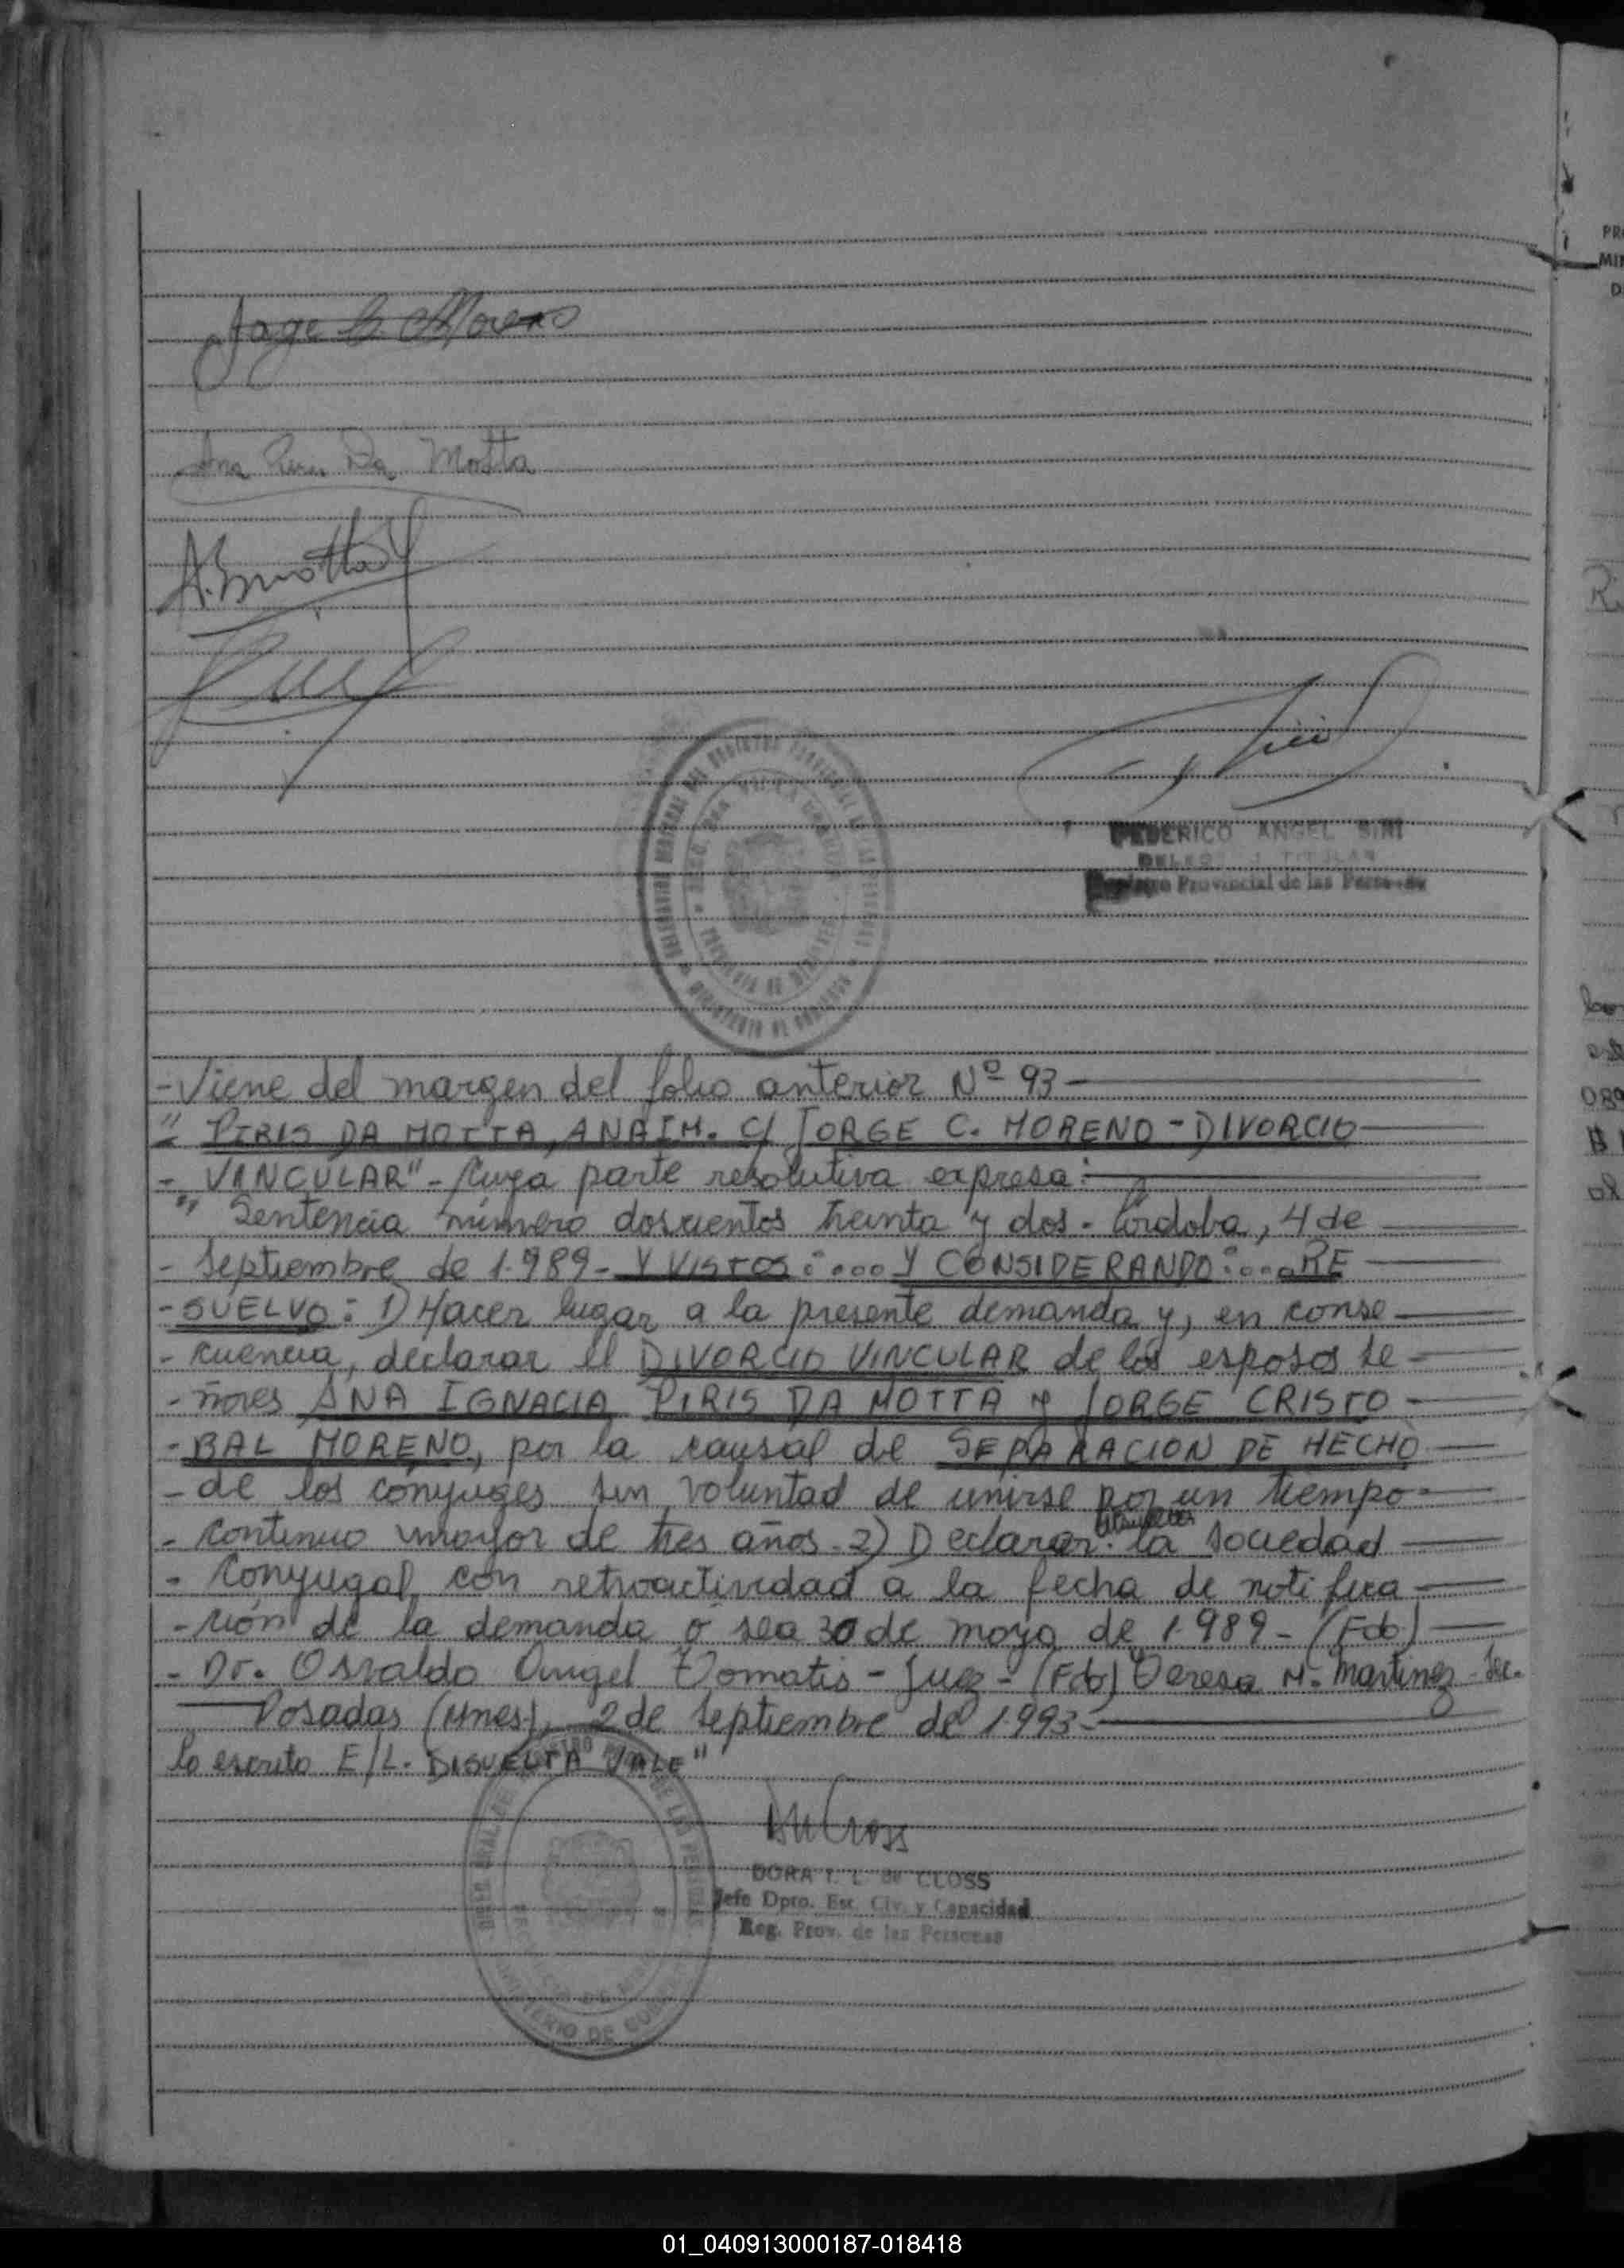 Jorge C. Moreno
Ana Piris Da Motta
A. B. Motta
FEDERICO ANGEL SIRI
DELEGADO TITULAR
Registro Provincial de las Personas
- Viene del margen del folio anterior Nº 93
" PIRIS DA MOTTA, ANA I M. C/ JORGE C. MORENO - DIVORCIO
- VINCULAR" - Cuya parte resolutiva expresa:
" Sentencia número doscientos treinta y dos - Córdoba, 4 de
- Septiembre de 1.989 - Y VISTOS: .... Y CONSIDERANDO: ... RE
- SUELVO: 1) Hacer lugar a la presente demanda y, en conse
- cuencia, declarar el DIVORCIO VINCULAR de los esposos se -
- ñores ANA IGNACIA PIRIS DA MOTTA y JORGE CRISTO -
- BAL MORENO, por la causal de SEPARACION DE HECHO
- de los cónyuges sin voluntad de unirse por un tiempo -
- continuo mayor de tres años - 2) Declarar la sociedad
- Conyugal con retroactividad a la fecha de notifica
- ción de la demanda ó sea 30 de mayo de 1.989 - (Fdo)
- Dr. Osvaldo Angel Tomatis - Juez - (Fdo) Teresa M. Martinez - Sec.
Posadas (Mnes), 2 de Septiembre de 1.993 -
lo escrito E/L. DISUELTA VALE"
DORA I. L. de CLOSS
Jefe Dpto. Est. Civ. y Capacidad
Reg. Prov. de las Personas
01_040913000187-018418